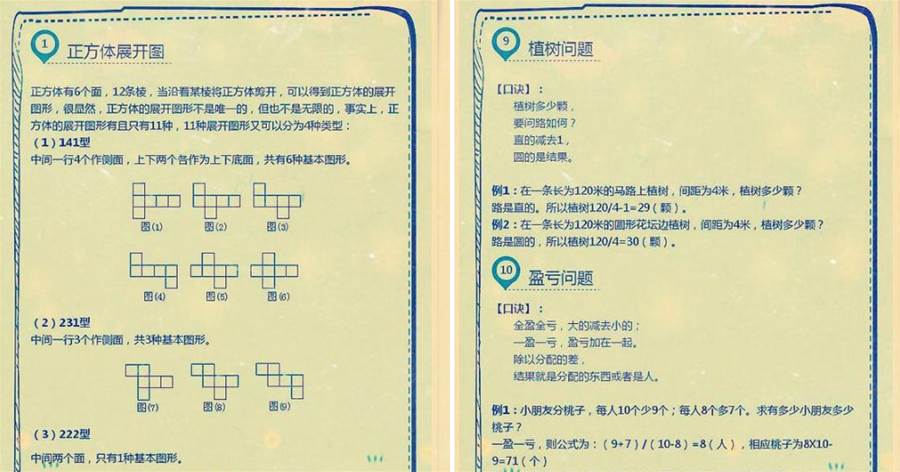 1
正方体展开图
正方体有6个面，12条棱，当沿着某棱将正方体剪开，可以得到正方体的展开
图形，很显然，正方体的展开图形不是唯一的，但也不是无限的，事实上，正
方体的展开图形有且只有11种，11种展开图形又可以分为4种类型：
（1）141型
中间一行4个作侧面，上下两个各作为上下底面，共有6种基本图形。
图(1) 图(2) 图(3)
图(4) 图(5) 图(6)
（2）231型
中间一行3个作侧面，共3种基本图形。
图(7) 图(8) 图(9)
（3）222型
中间两个面，只有1种基本图形。
9
植树问题
【口诀】：
植树多少颗，
要问路如何？
直的减去1，
圆的是结果。
例1：在一条长为120米的马路上植树，间距为4米，植树多少颗？
路是直的。所以植树120/4-1=29（颗）。
例2：在一条长为120米的圆形花坛边植树，间距为4米，植树多少颗？
路是圆的，所以植树120/4=30（颗）。
10
盈亏问题
【口诀】：
全盈全亏，大的减去小的；
一盈一亏，盈亏加在一起。
除以分配的差，
结果就是分配的东西或者是人。
例1：小朋友分桃子，每人10个少9个；每人8个多7个。求有多少小朋友多少
桃子？
一盈一亏，则公式为：（9+7）/（10-8）=8（人），相应桃子为8X10-
9=71（个）